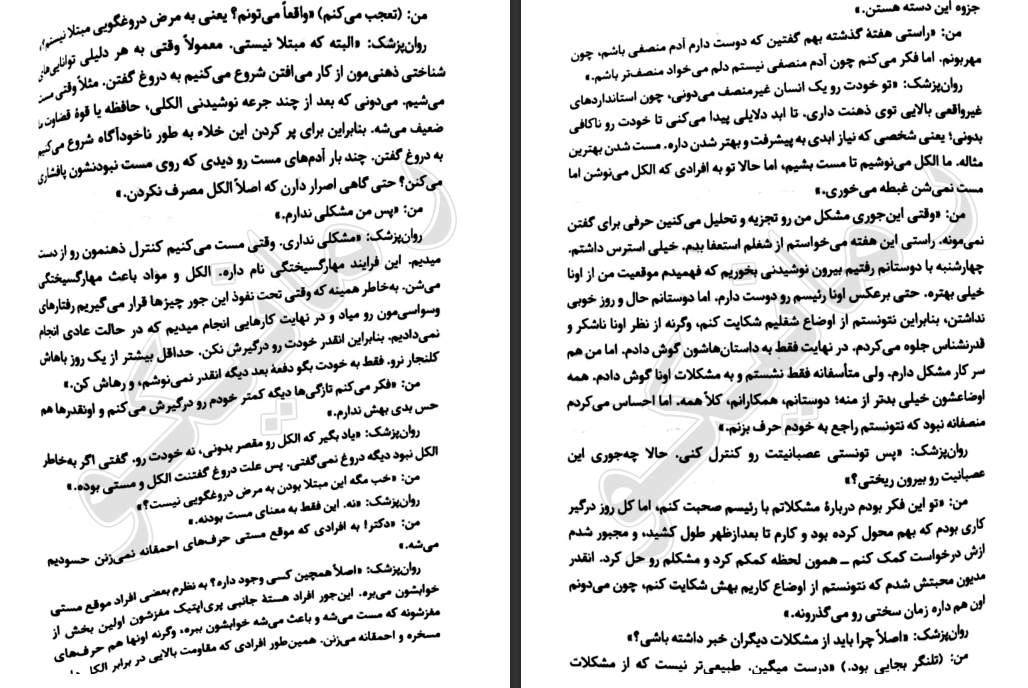 جزوه این دسته هستن.»
من: «راستی هفتهٔ گذشته بهم گفتین که دوست دارم آدم منصفی باشم، چون
مهربونم. اما فکر می‌کنم چون آدم منصفی نیستم دلم می‌خواد منصف‌تر باشم.»
روان‌پزشک: «تو خودت رو یک انسان غیرمنصف می‌دونی، چون استانداردهای
غیرواقعی بالایی توی ذهنت داری. تا ابد دلایلی پیدا می‌کنی تا خودت رو ناکافی
بدونی؛ یعنی شخصی که نیاز ابدی به پیشرفت و بهتر شدن داره. مست شدن بهترین
مثاله. ما الکل می‌نوشیم تا مست بشیم، اما حالا تو به افرادی که الکل می‌نوشن اما
مست نمی‌شن غبطه می‌خوری.»
من: «وقتی این‌جوری مشکل من رو تجزیه و تحلیل می‌کنین حرفی برای گفتن
نمی‌مونه. راستی این هفته می‌خواستم از شغلم استعفا بدم. خیلی استرس داشتم.
چهارشنبه با دوستانم رفتیم بیرون نوشیدنی بخوریم که فهمیدم موقعیت من از اونا
خیلی بهتره. حتی برعکس اونا رئیسم رو دوست دارم. اما دوستانم حال و روز خوبی
نداشتن، بنابراین نتونستم از اوضاع شغلیم شکایت کنم، وگرنه از نظر اونا ناشکر و
قدرنشناس جلوه می‌کردم. در نهایت فقط به داستان‌هاشون گوش دادم. اما من هم
سر کار مشکل دارم. ولی متأسفانه فقط نشستم و به مشکلات اونا گوش دادم. همه
اوضاعشون خیلی بدتر از منه؛ دوستانم، همکارانم، کلاً همه. اما احساس می‌کردم
منصفانه نبود که نتونستم راجع به خودم حرف بزنم.»
روان‌پزشک: «پس تونستی عصبانیتت رو کنترل کنی. حالا چه‌جوری این
عصبانیت رو بیرون ریختی؟»
من: «تو این فکر بودم دربارهٔ مشکلاتم با رئیسم صحبت کنم، اما کل روز درگیر
کاری بودم که بهم محول کرده بود و کارم تا بعدازظهر طول کشید، و مجبور شدم
ازش درخواست کمک کنم ــ همون لحظه کمکم کرد و مشکلم رو حل کرد. انقدر
مدیون محبتش شدم که نتونستم از اوضاع کاریم بهش شکایت کنم، چون می‌دونم
اون هم داره زمان سختی رو می‌گذرونه.»
روان‌پزشک: «اصلاً چرا باید از مشکلات دیگران خبر داشته باشی؟»
من: (تلنگر بجایی بود.) «درست میگین. طبیعی‌تر نیست که از مشکلات
من: (تعجب می‌کنم) «واقعاً می‌تونم؟ یعنی به مرض دروغگویی مبتلا نیستم؟»
روان‌پزشک: «البته که مبتلا نیستی. معمولاً وقتی به هر دلیلی توانایی‌های
شناختی ذهنی‌مون از کار می‌افتن شروع می‌کنیم به دروغ گفتن. مثلاً وقتی مست
می‌شیم. می‌دونی که بعد از چند جرعه نوشیدنی الکلی، حافظه یا قوهٔ قضاوت
ضعیف می‌شه. بنابراین برای پر کردن این خلاء به طور ناخودآگاه شروع می‌کنیم
به دروغ گفتن. چند بار آدم‌های مست رو دیدی که روی مست نبودنشون پافشاری
می‌کنن؟ حتی گاهی اصرار دارن که اصلاً الکل مصرف نکردن.»
من: «پس من مشکلی ندارم.»
روان‌پزشک: «مشکلی نداری. وقتی مست می‌کنیم کنترل ذهنمون رو از دست
میدیم. این فرایند مهارگسیختگی نام داره. الکل و مواد باعث مهارگسیختگی
می‌شن. به‌خاطر همینه که وقتی تحت نفوذ این جور چیزها قرار می‌گیریم رفتارهای
وسواسی‌مون رو میاد و در نهایت کارهایی انجام میدیم که در حالت عادی انجام
نمی‌دادیم. بنابراین انقدر خودت رو درگیرش نکن. حداقل بیشتر از یک روز باهاش
کلنجار نرو. فقط به خودت بگو دفعهٔ بعد دیگه انقدر نمی‌نوشم، و رهاش کن.»
من: «فکر می‌کنم تازگی‌ها دیگه کمتر خودم رو درگیرش می‌کنم و اونقدرها هم
حس بدی بهش ندارم.»
روان‌پزشک: «یاد بگیر که الکل رو مقصر بدونی، نه خودت رو. گفتی اگر به‌خاطر
الکل نبود دیگه دروغ نمی‌گفتی. پس علت دروغ گفتنت الکل و مستی بوده.»
من: «خب مگه این مبتلا بودن به مرض دروغگویی نیست؟»
روان‌پزشک: «نه. این فقط به معنای مست بودنه.»
من: «دکتر! به افرادی که موقع مستی حرف‌های احمقانه نمی‌زنن حسودیم
می‌شه.»
روان‌پزشک: «اصلاً همچین کسی وجود داره؟ به نظرم بعضی افراد موقع مستی
خوابشون می‌بره. این‌جور افراد هستهٔ جانبی پری‌اپتیک مغزشون اولین بخش از
مغزشونه که مست می‌شه و باعث می‌شه خوابشون ببره، وگرنه اونها هم حرف‌های
مسخره و احمقانه می‌زنن. همین‌طور افرادی که مقاومت بالایی در برابر الکل